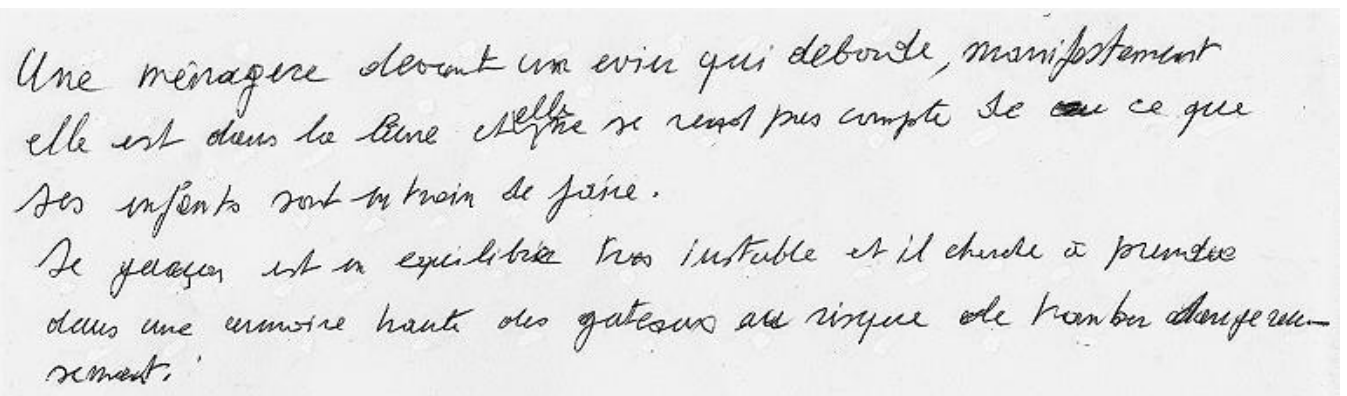 Une ménagere devant un evier qui deborde, manifestement
elle est dans la lune et elle ne se rend pas compte de ce que
ses enfants sont en train de faire.
Le garçon est en equilibre tres instable et il cherche à prendre
dans une armoire haute des gateaux au risque de tomber dangereu-
sement.